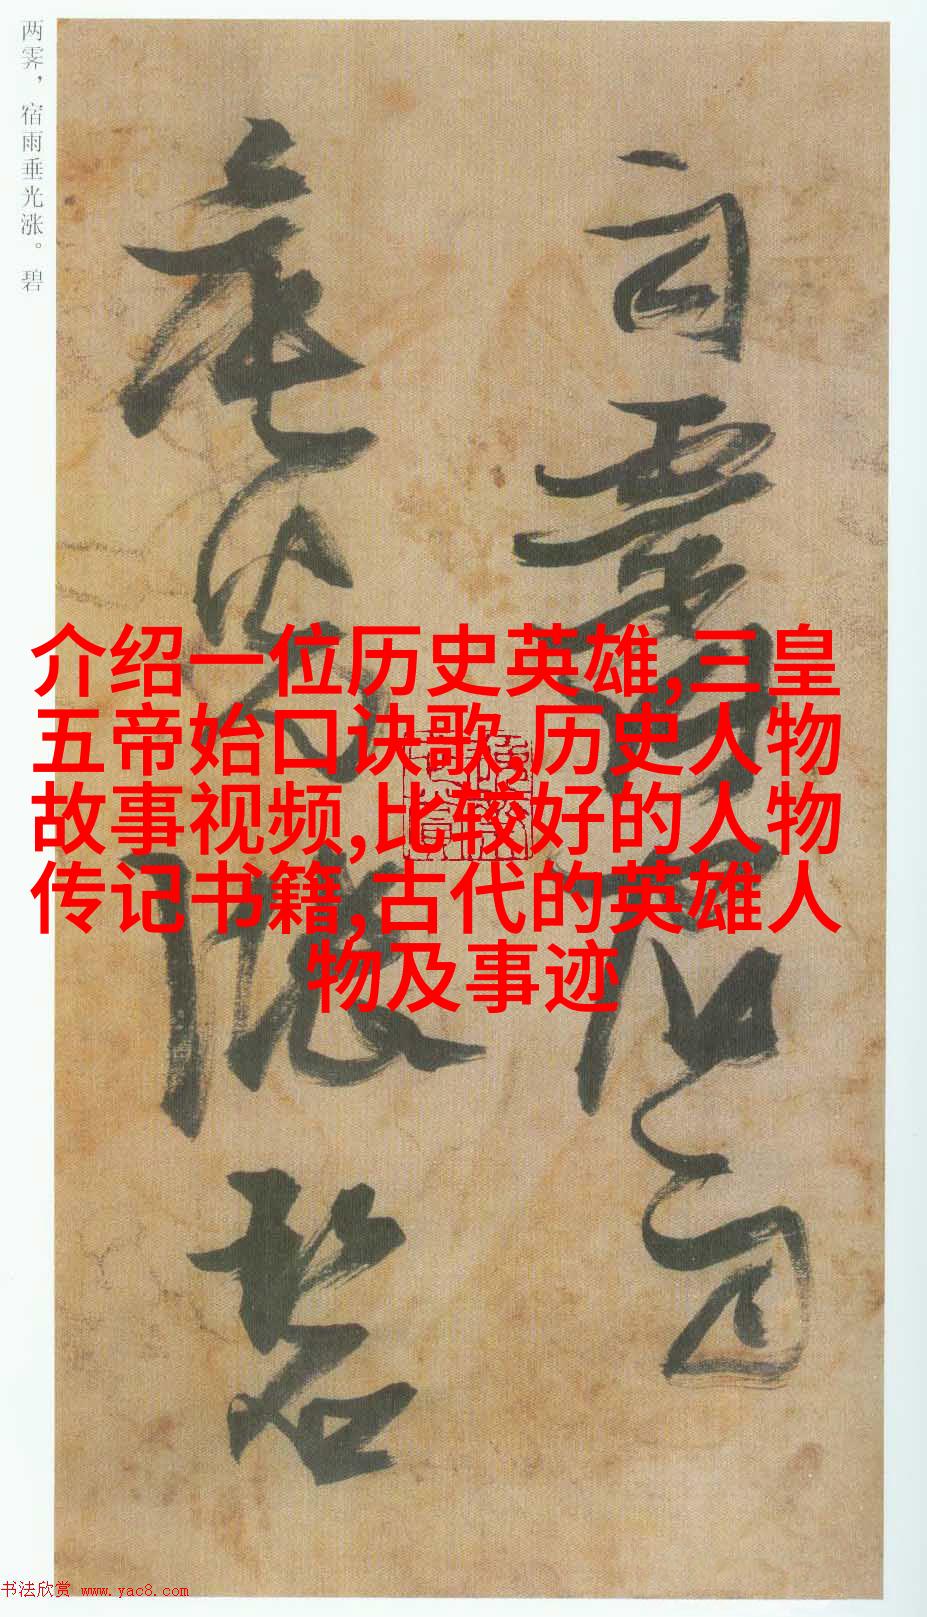 两霁，宿雨垂光涨。碧
介绍一位历史英雄,三皇
五帝始口诀歌,历史人物
故事视频,比较好的人物
传记书籍,古代的英雄人
物及事迹
垂光涨碧
书法欣赏 www.yac8.com